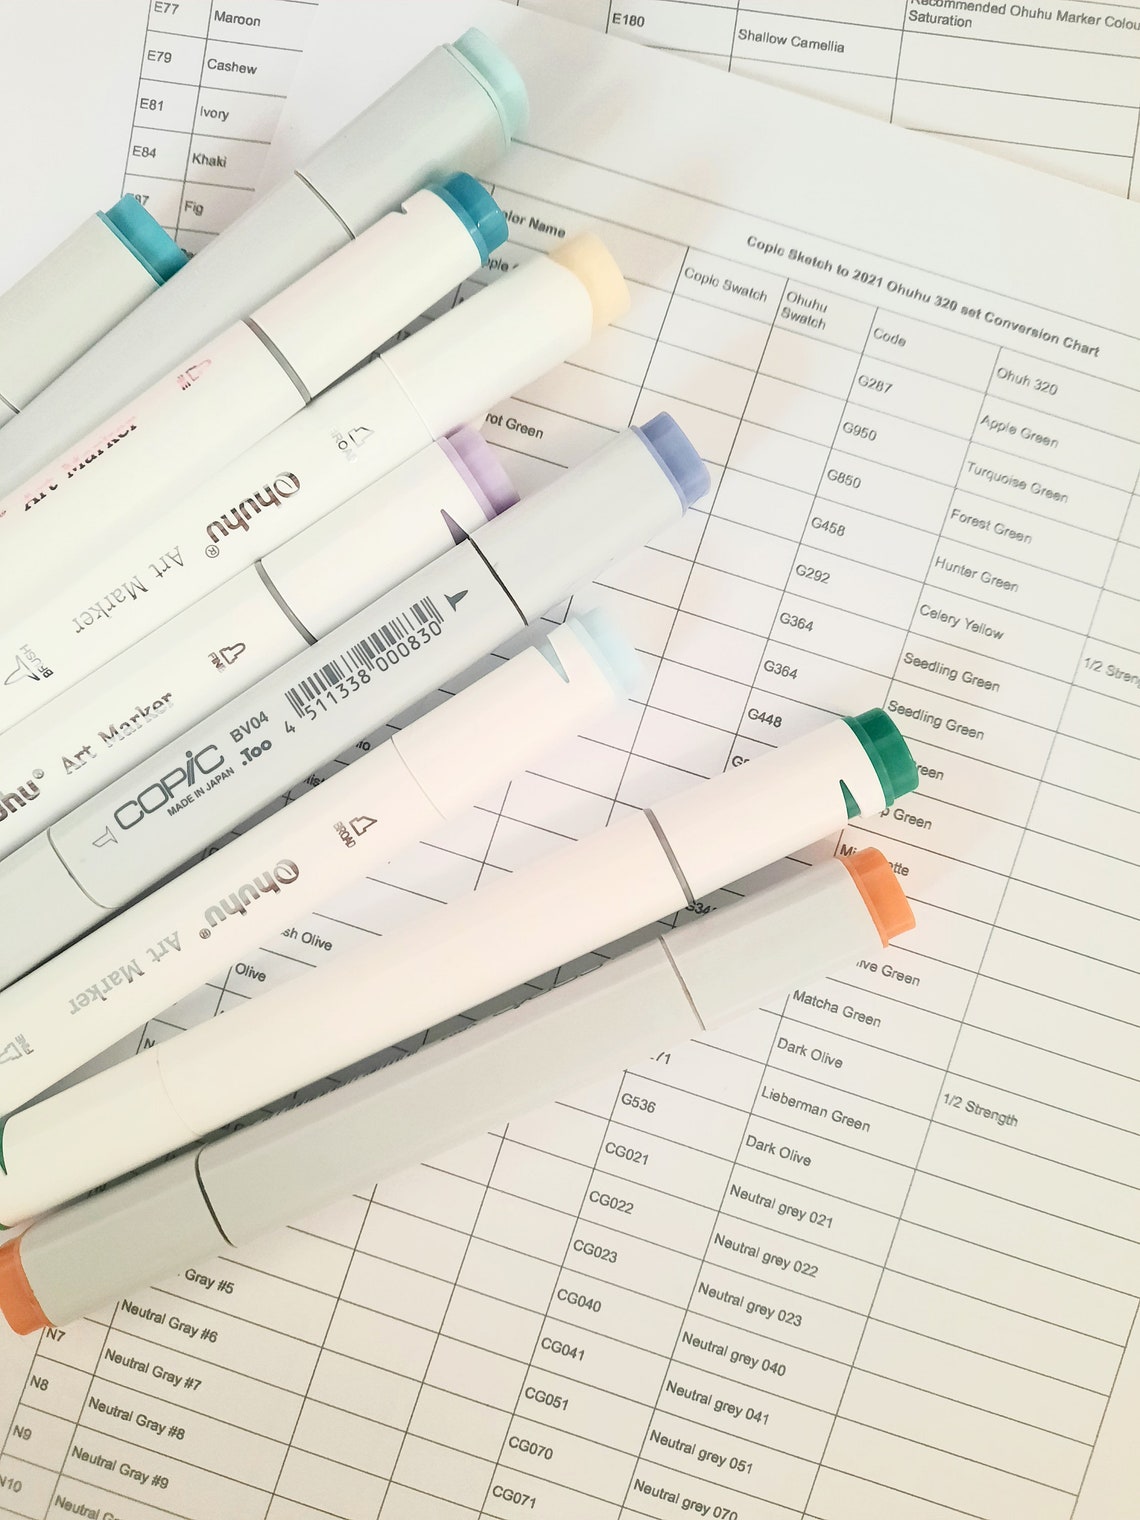 E77 Maroon
E79 Cashew
E81 Ivory
E84 Khaki
Fig
E180 Shallow Camellia
Recommended Ohuhu Marker Colou
Saturation
Copic Sketch to 2021 Ohuhu 320 set Conversion Chart
Name
Copic Swatch
Ohuhu
Swatch
Code
Ohuh 320
G287 Apple Green
G950 Turquoise Green
G850 Forest Green
G458 Hunter Green
G292 Celery Yellow
G364 Seedling Green 1/2 Streng
G364 Seedling Green
G448
Green
rot Green
Art Marker
Ohuhu® Art Marker
BROAD
BRUSH
FINE
uhu® Art Marker
COPIC BV04
MADE IN JAPAN .Too
4 511338 000830
BROAD
Ohuhu® Art Marker
sh Olive
Olive
ive Green
Matcha Green
Dark Olive
71 Lieberman Green 1/2 Strength
G536 Dark Olive
CG021 Neutral grey 021
CG022 Neutral grey 022
CG023 Neutral grey 023
CG040 Neutral grey 040
CG041 Neutral grey 041
CG051 Neutral grey 051
CG070 Neutral grey 070
CG071
Gray #5
Neutral Gray #6
N7 Neutral Gray #7
N8 Neutral Gray #8
N9 Neutral Gray #9
N10 Neutral Gr